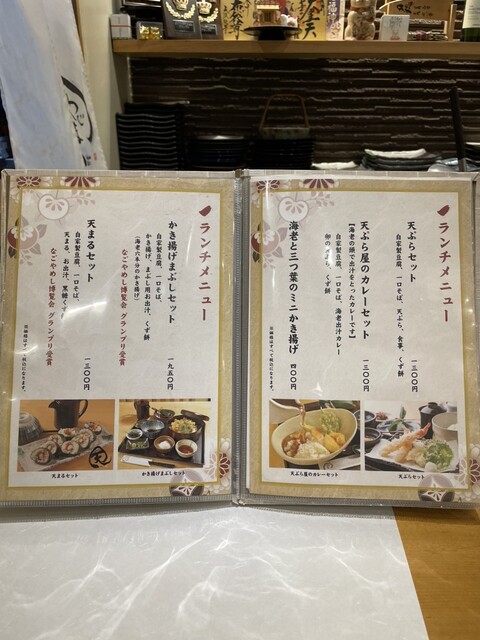 ランチメニュー
天ぷらセット
自家製豆腐、一口そば、天ぷら、お食事、くず餅
一三〇〇円
天ぷら屋のカレーセット
【海老の頭で出汁をとったカレーです】
自家製豆腐、一口そば、海老出汁カレー
卵の天ぷら、くず餅
一三〇〇円
海老と三つ葉のミニかき揚げ
四〇〇円
※価格はすべて税込になります。
天ぷら屋のカレーセット
天ぷらセット
ランチメニュー
かき揚げまぶしセット
自家製豆腐、一口そば、
かき揚げ、まぶし用お出汁、くず餅
(海老六本分のかき揚げ)
なごやめし博覧会 グランプリ受賞
一九五〇円
天まるセット
自家製豆腐、一口そば、
天まる、お出汁、黒糖くず
なごやめし博覧会 グランプリ受賞
一三〇〇円
※価格はすべて税込になります。
天まるセット
かき揚げまぶしセット